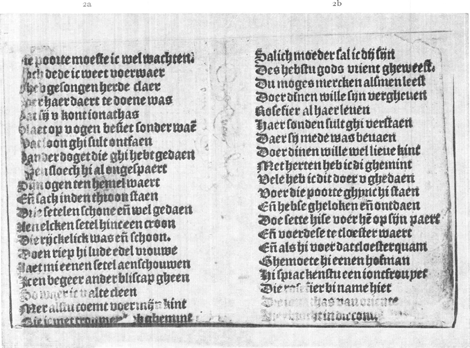 2a
2b
ie poorte moeste ic wel wachten
ch dede ic weet voerwaer
heb gesongen herde claer
er haerdaert te doene was
at sij v kont ionathas
laet op v ogen besiet sonder waē
loon ghi sult ontfaen
ander doget die ghi hebt gedaen
en sloech hi al ongespaert
ogen ten hemel waert
Eñ sach inden throon staen
Drie setelen schone eñ wel gedaen
elcken setel hinc een croon
Die rijckelick was eñ schoon
Doen riep hi lude edel vrouwe
aet mi eenen setel aenschouwen
een begeer ander bliscap gheen
alte cleen
Mer alstu coemt voer mijn kint
ghemint
Salich moeder sal ic dij sijn
Des hebstu gods vrient gheweest
Du moges mercken alsmen leest
Doer dinen wille sijn vergheuen
Rosefier al haer leuen
Haer sonden sult ghi verstaen
Daer sij mede was beuaen
Doer dinen wille wel lieue kint
Met herten heb ic di ghemint
Vele heb ic dit doer v ghedaen
Voer die poorte ghinc hi staen
Eñ hebse gheloken eñ ontdaen
Doe sette hise voer hē op sijn paert
Eñ voerdese te cloester waert
Eñ als hi voer dat cloester quam
Ghemoete hi eenen hofman
Hi sprac kenstu een ioncfrou pet
Die rosefier bi name hiet
Die van oriente